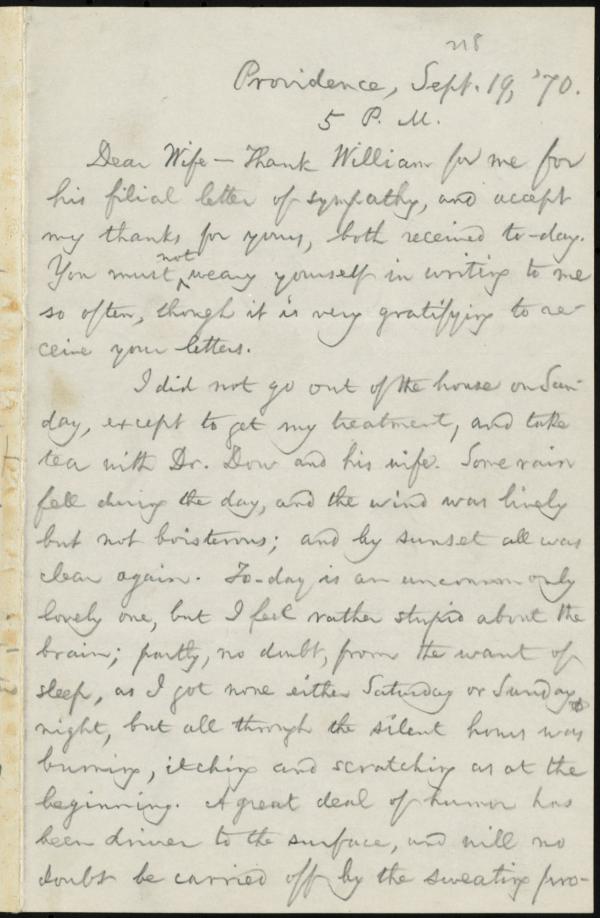 218
Providence, Sept. 19, '70.
5 P. M.
Dear Wife — Thank William for me for
his filial letter of sympathy, and accept
my thanks for yours, both received to-day.
You must not weary yourself in writing to me
so often, though it is very gratifying to re-
ceive your letters.
I did not go out of the house on Sun-
day, except to get my treatment, and take
tea with Dr. Dow and his wife. Some rain
fell during the day, and the wind was lively
but not boisterous; and by sunset all was
clear again. To-day is an uncommonly
lovely one, but I feel rather stupid about the
brain; partly, no doubt, from the want of
sleep, as I got none either Saturday or Sunday
night, but all through the silent hours was
burning, itching and scratching as at the
beginning. A great deal of humor has
been driven to the surface, and will no
doubt be carried off by the sweating pro-